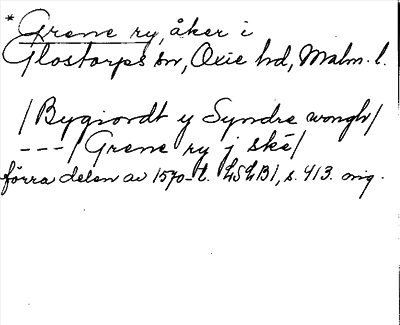 * Grene ry, åker i
Glostorps sn, Oxie hd, Malm. l.
/Bygiordt y Syndre wongh/
---/Grene ry j ské/
förra delen av 1570-t. LSLB1, s. 413. orig.